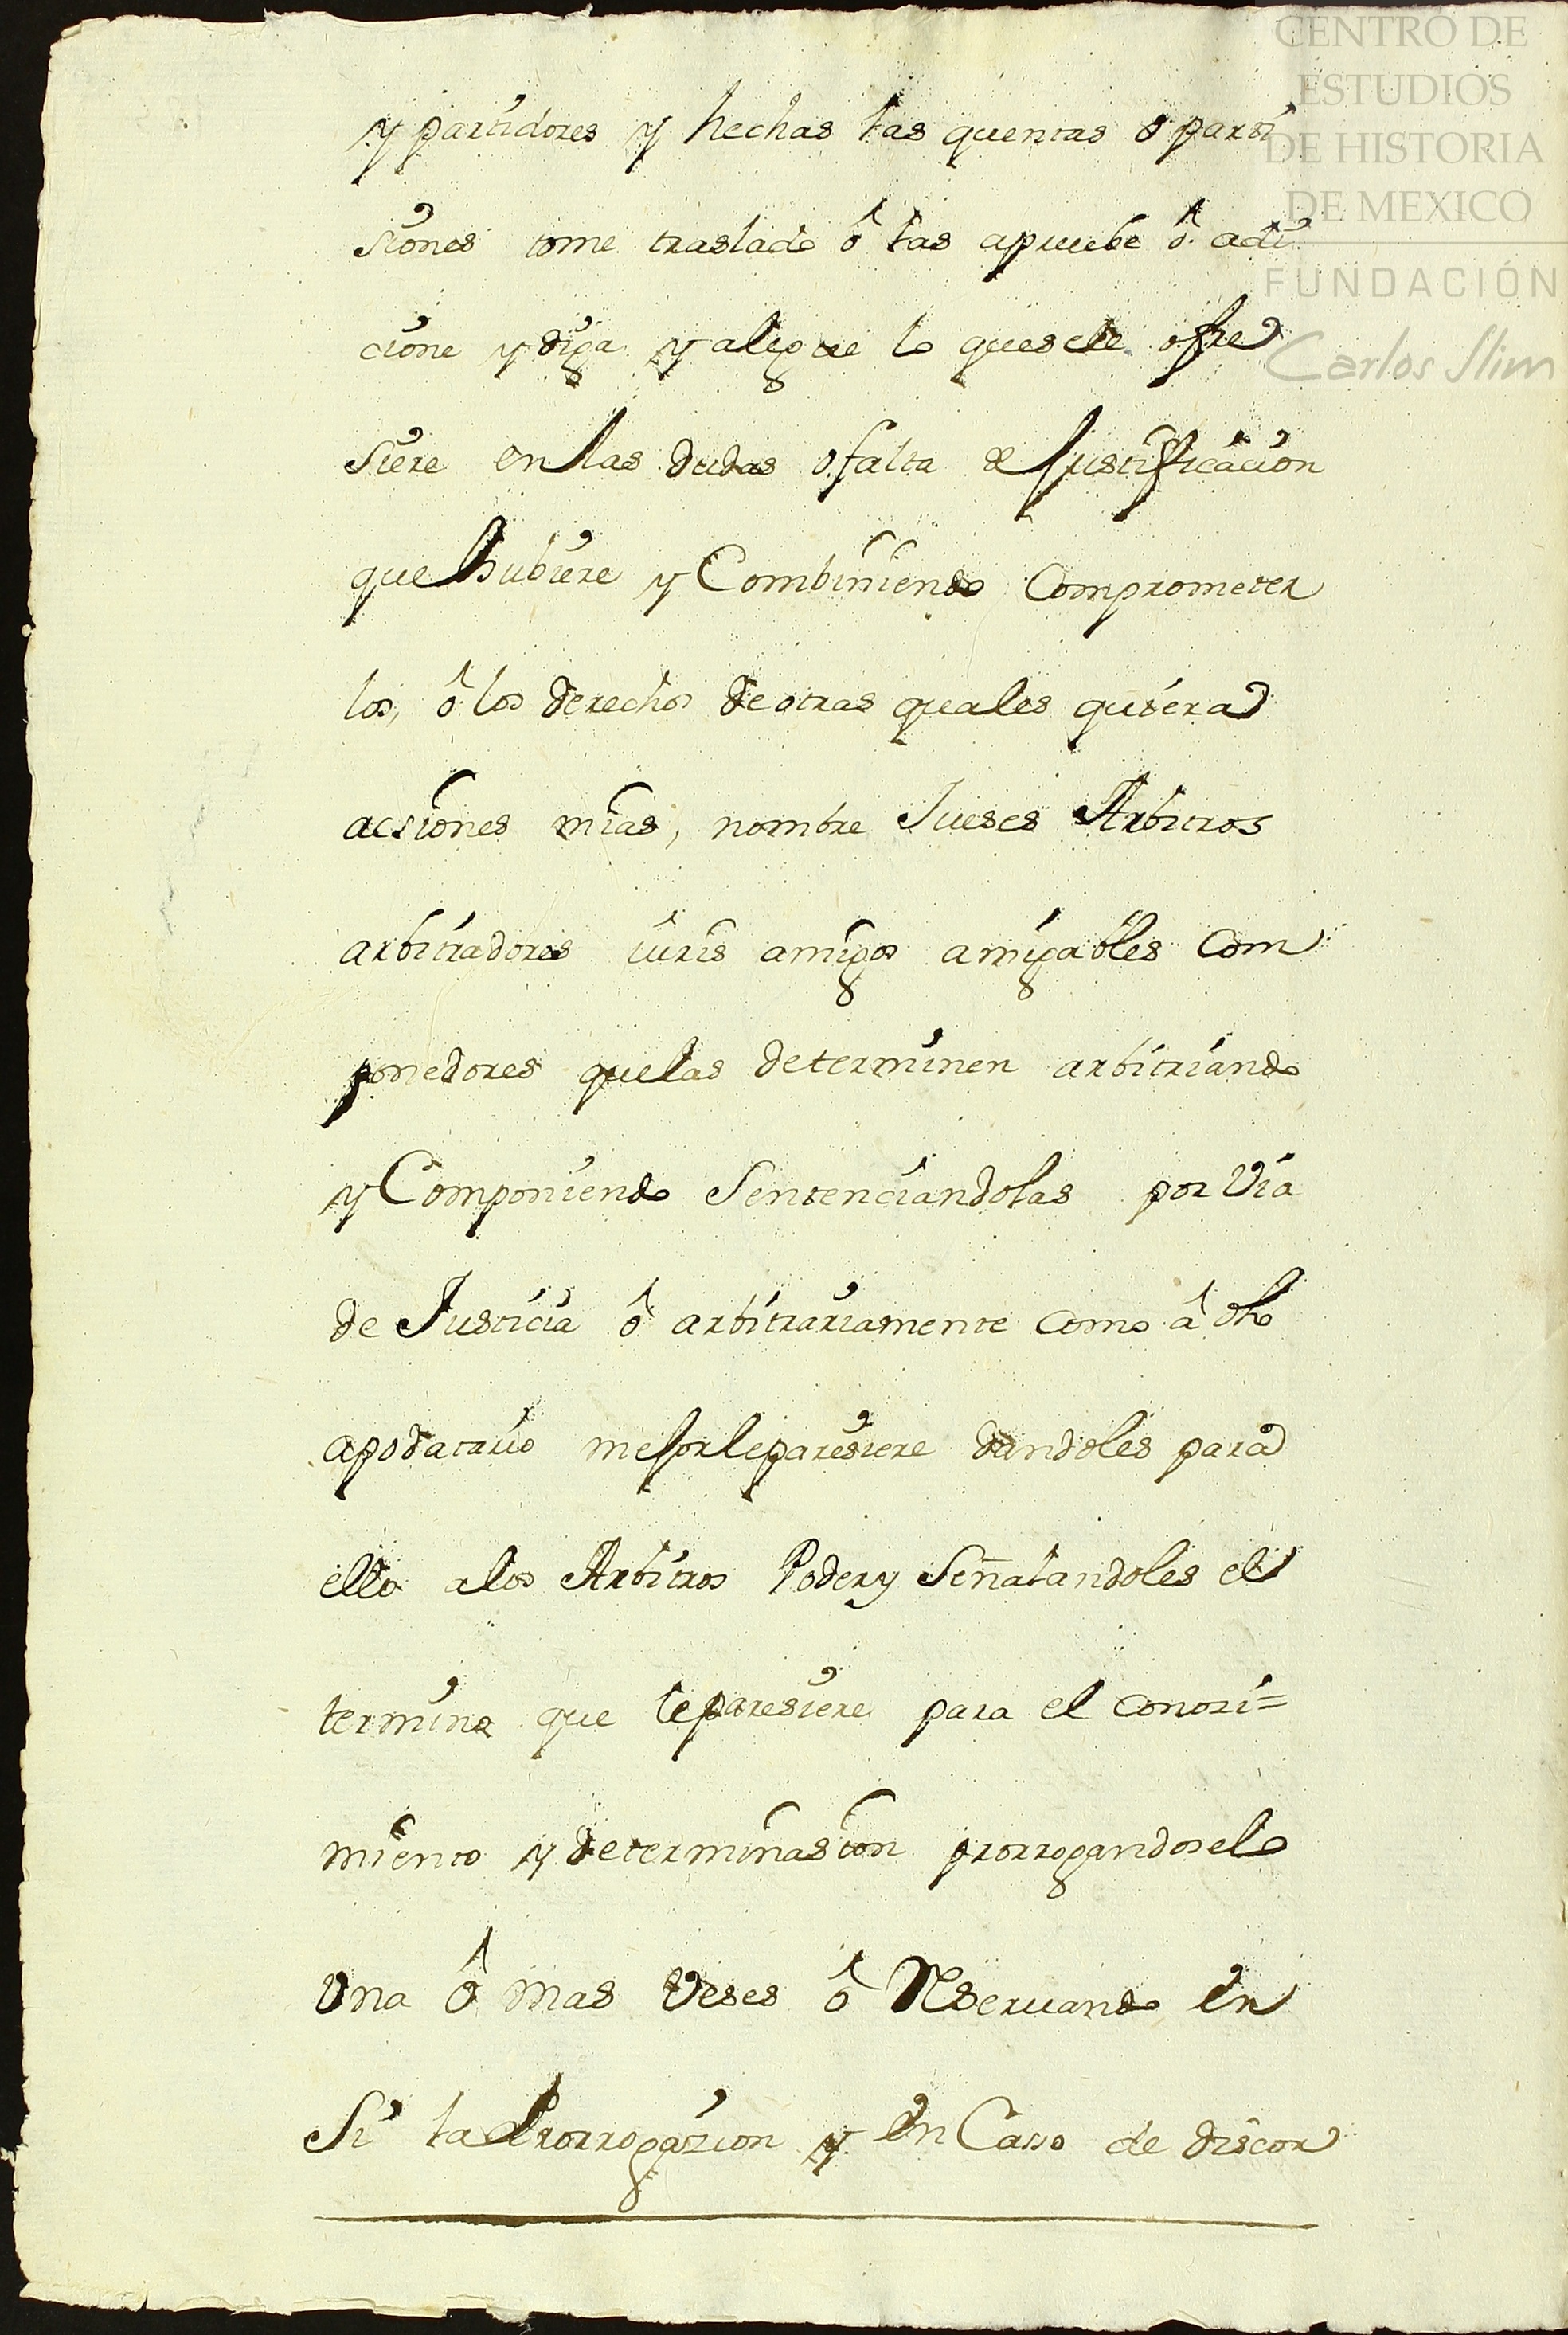 CENTRO DE
ESTUDIOS
DE HISTORIA
DE MEXICO
FUNDACIÓN
Carlos Slim
y partidores y hechas las quentas o parti
siones tome traslado ô las apruebe ô adi
cione y diga y alegue lo quesele ofre
siere en las dudas o falta de Justificacion
que hubiere y Combiniendo Comprometer
los, ô los derechos de otras quales quiera
acsiones mias, nombre Jueses Arbitros
arbitradores iuris amigos amigables Com
ponedores quelas determinen arbitriando
y Componiendo Sentenciandolas por Via
de Justicia ô arbitrariamente Como â dho
apodatario mejorleparesiere dandoles para
ello alos Arbitros Poder y Señalandoles el
termino que leparesiere para el conosi=
miento y determinasion prorrogandoselo
Una ô mas Veses ô Reservando en
Si la Prorrogazion y en Caso de discor